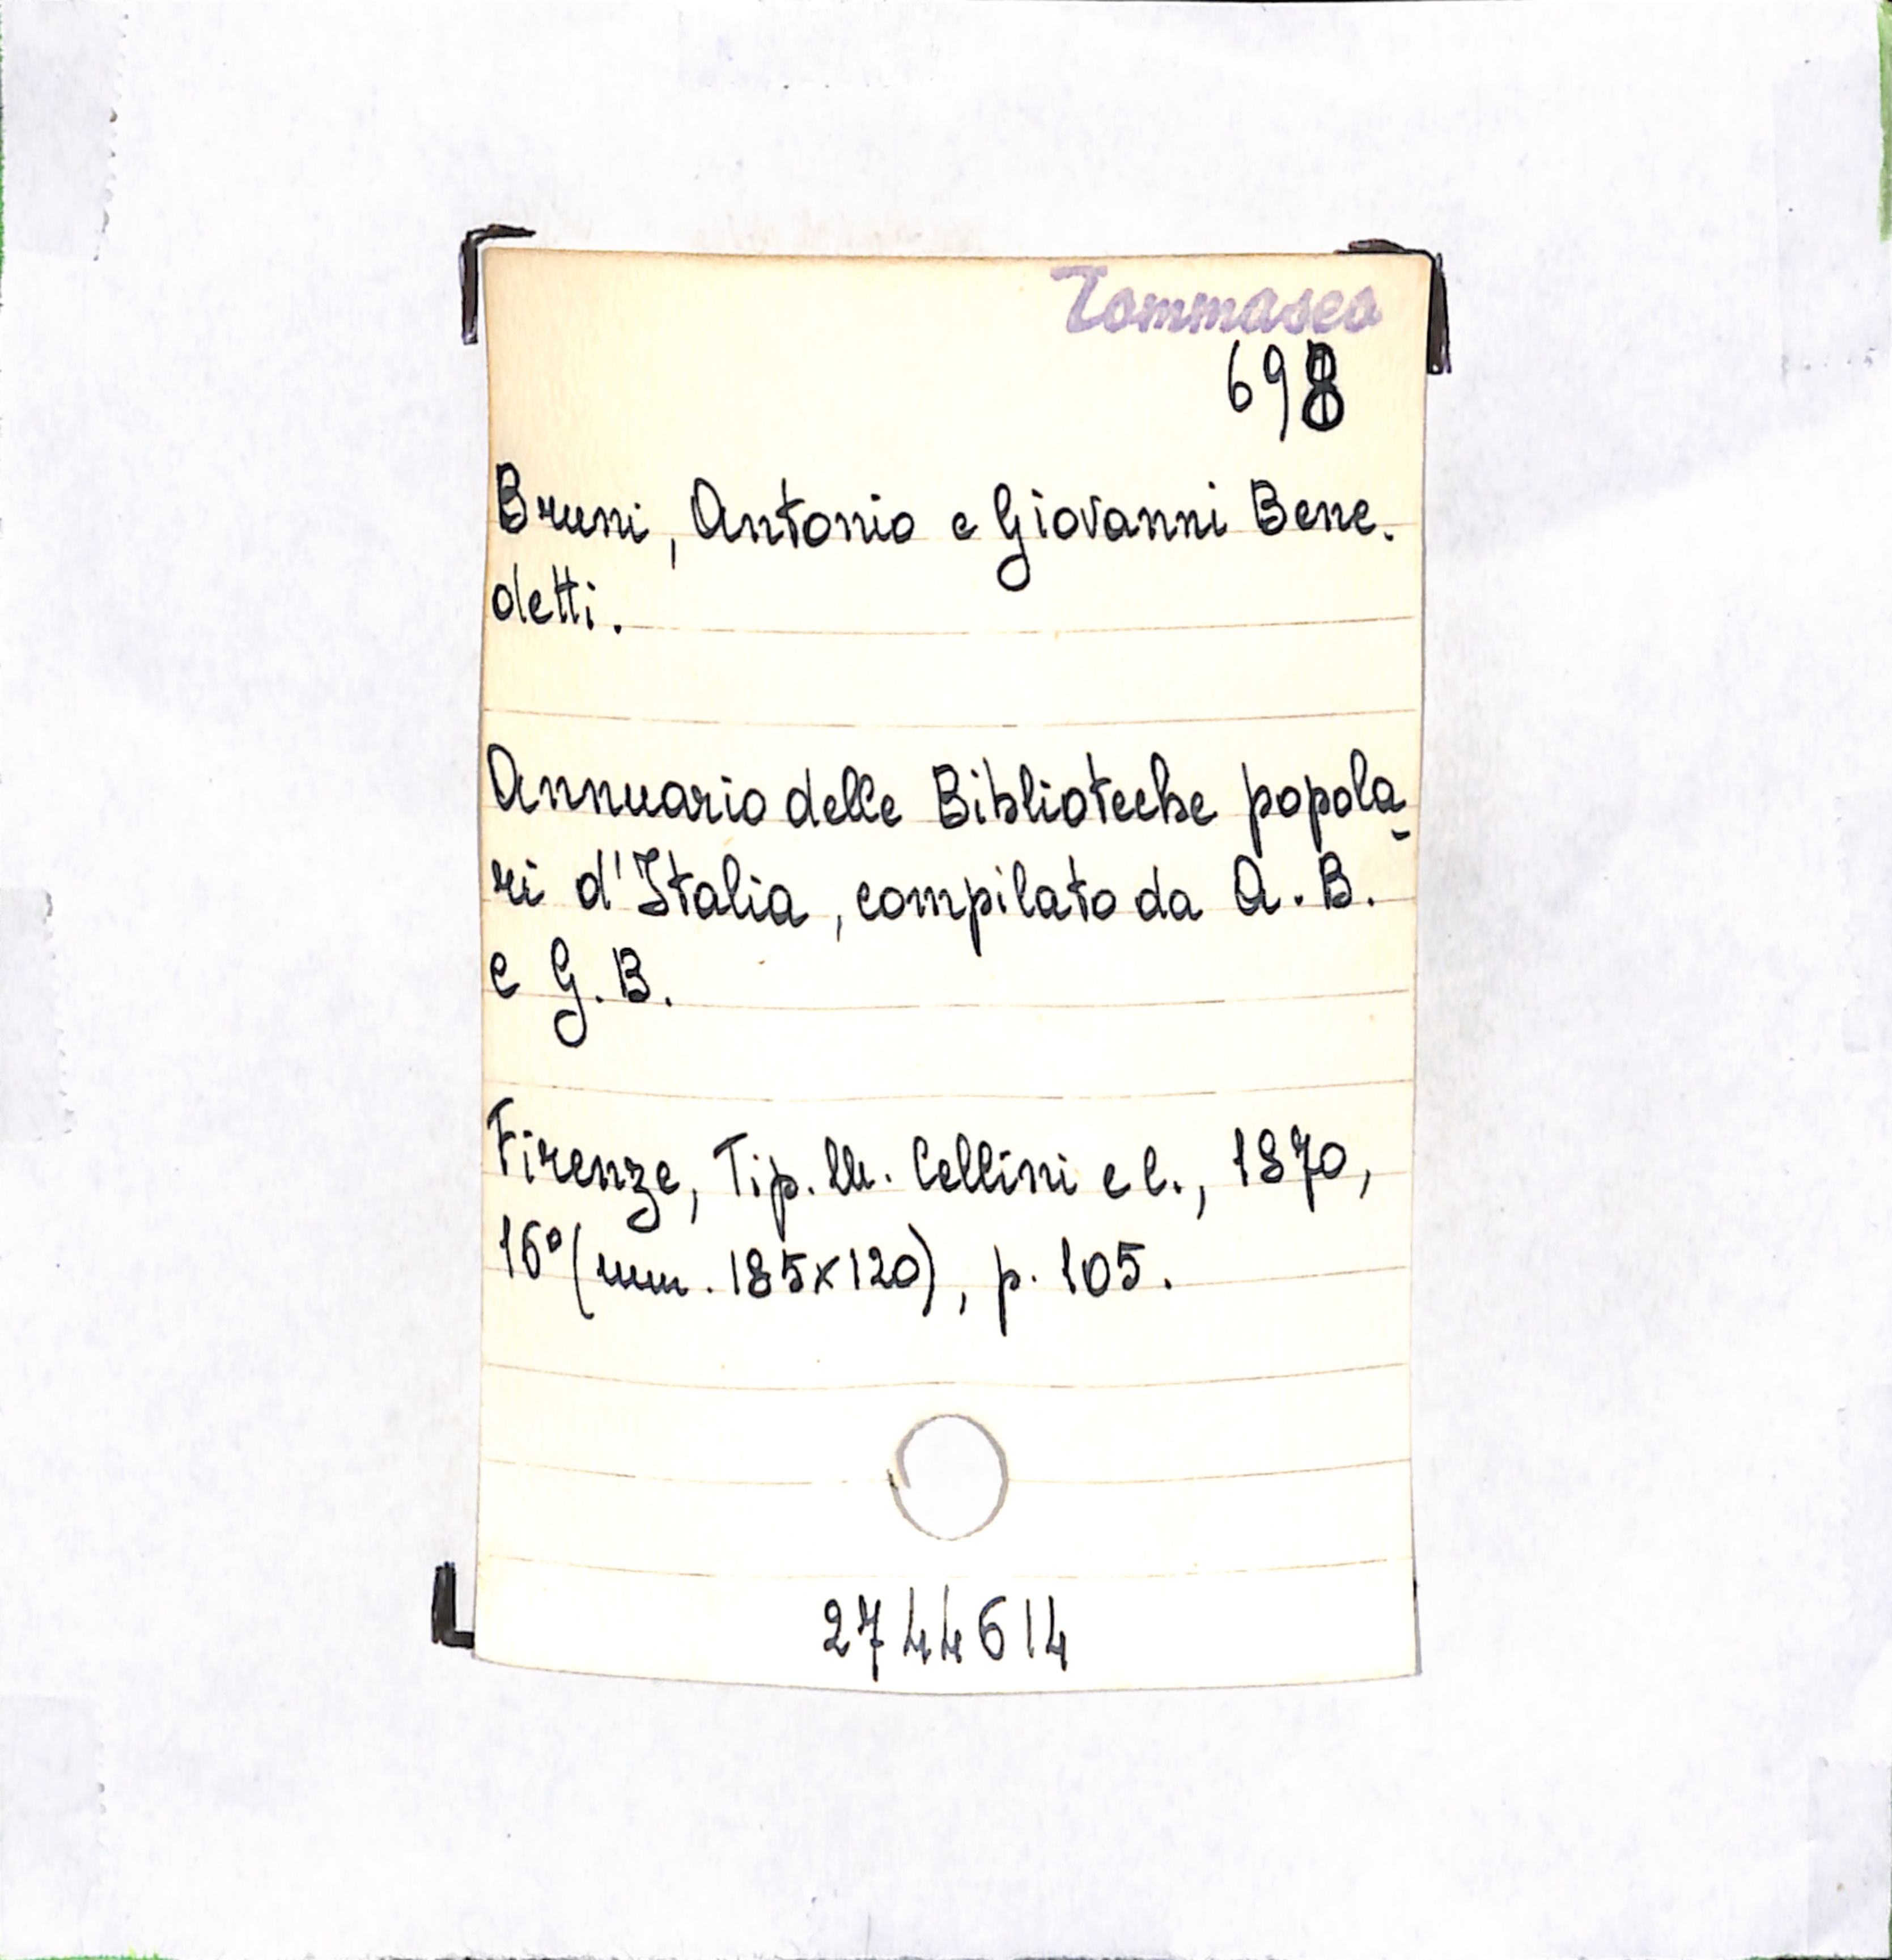 Tommaseo
698
Bruni, Antonio e Giovanni Bene-
detti.
Annuario delle Biblioteche popola-
ri d'Italia, compilato da A. B.
e G. B.
Firenze, Tip. M. Cellini e C., 1870,
16° (mm. 185x120), p. 105.
2744614